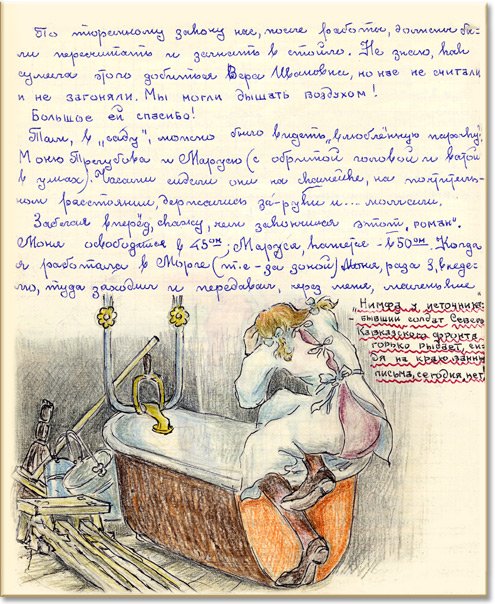 По тюремному закону нас, после работы, должны бы-
ли пересчитать и загнать в стойло. Не знаю, как
сумела этого добиться Вера Ивановна, но нас не считали
и не загоняли. Мы могли дышать воздухом!
Большое ей спасибо!
Там, в „саду“, можно было видеть „влюблённую парочку“:
Моню и Марусю (с обритой головой и ватой
в ушах). Часами сидели они на скамейке, на почтитель-
ном расстоянии, держались за-руки и... молчали.
Забегая вперёд, скажу, чем закончился этот „роман“.
Моня освободился в 45ом; Маруся, кажется - в 50ом. Когда
я работала в Морге (т.е - за зоной) Моня, раза 3, в неде-
лю, туда заходил и передавал, через меня, маленькие
„Нимфа у источника:
бывший солдат Северо
Кавказского фронта
горько рыдает, си-
дя на краю ванны
письма, сегодня, нет!